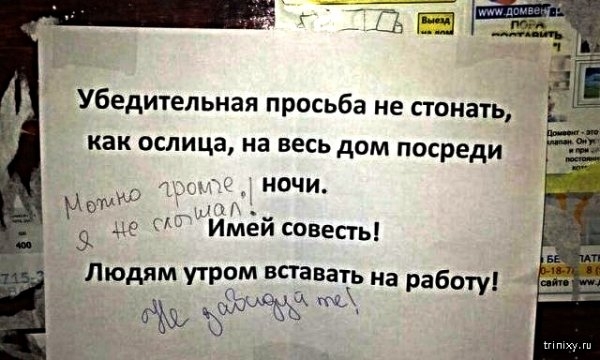 Выезд
на дом
www.домвент.р
ПОРА
Убедительная просьба не стонать,
как ослица, на весь дом посреди
ночи.
Можно громче,
я не слышал!
Имей совесть!
Людям утром вставать на работу!
Не завидуйте!
400
trinixy.ru